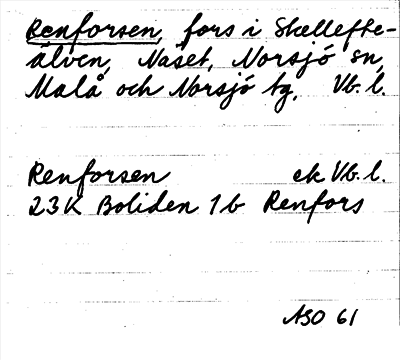 Renforsen, fors i Skellefte-
älven, Näset, Norsjö sn,
Malå och Norsjö tg. Vb. l.
Renforsen ek Vb. l.
23K Boliden 1b Renfors
ASO 61